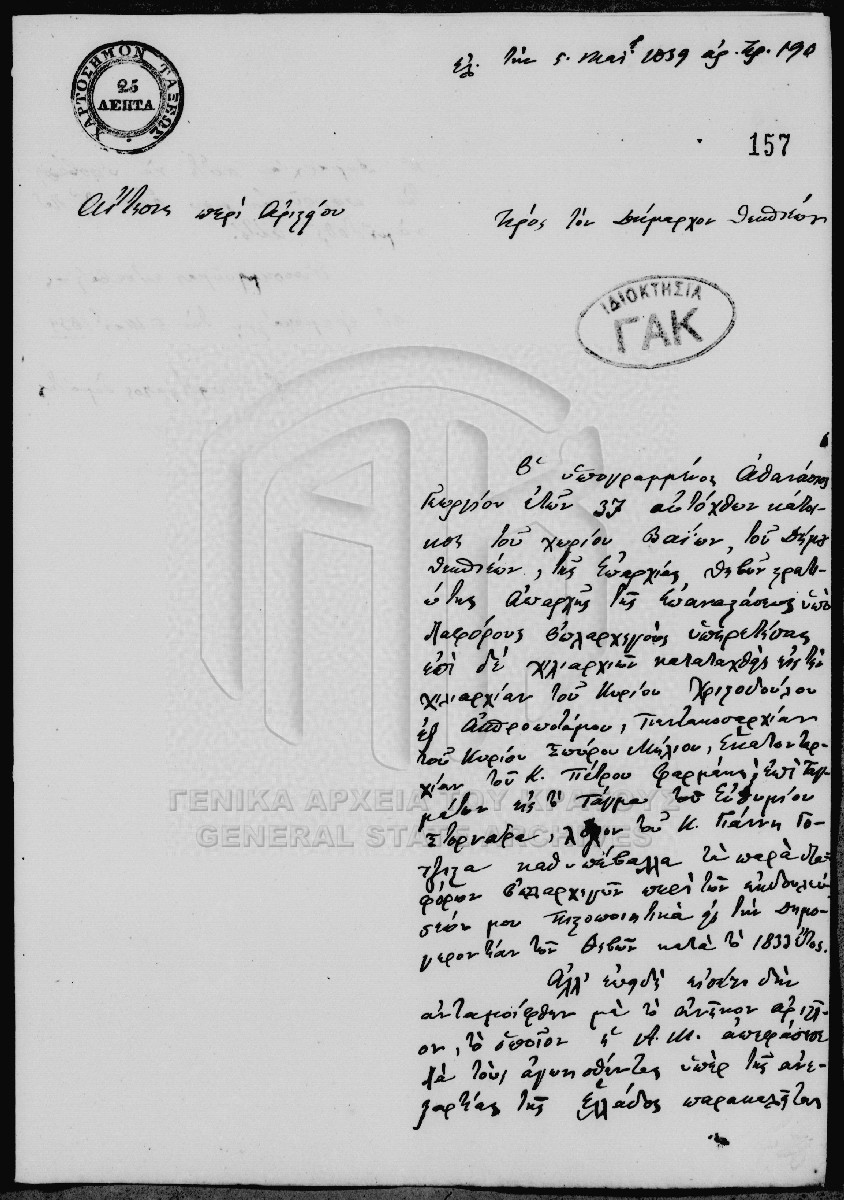 ΧΑΡΤΟΣΗΜΟΝ ΤΑΞΕΩΣ
25
ΛΕΠΤΑ
τὴν 5 Μαΐ 1839 ἀρ. πρ. 190
157
Αἴτησις περὶ Ἀριστείου
Πρὸς τὸν Δήμαρχον Θεσπιέων
ΙΔΙΟΚΤΗΣΙΑ
ΓΑΚ
Ὁ ὑπογραμμένος Ἀθανάσιος
Γεωργίου ἐτῶν 37 αὐτόχθων κάτοι-
κος τοῦ χωρίου Βαΐων, τοῦ Δήμου
Θεσπιέων, τῆς Ἐπαρχίας Θηβῶν στρατι-
ώτης ἀπαρχῆς τῆς ἐπαναστάσεως ὑπὸ
διαφόρους ὁπλαρχηγοὺς ὑπηρετήσας
ἐπὶ δὲ χιλιαρχιῶν καταταχθεὶς εἰς τὴν
χιλιαρχίαν τοῦ Κυρίου Χριστοδούλου
Ἀσπροποτάμου, Πεντακοσαρχίαν
τοῦ Κυρίου Σπύρου Μήλιου, Ἑκατονταρ-
χίαν τοῦ Κ. Πέτρου Φαρμάκη, ἐπὶ Ταγ-
μάτων εἰς τὸ Τάγμα τοῦ Εὐθυμίου
Στορνάρα, λόχον τοῦ Κ. Γιάννη
καθυπέβαλλα τὰ παρὰ δια-
φόρων ὁπλαρχηγῶν περὶ τῶν ἐκδουλεύ-
σεών μου πιστοποιητικὰ εἰς τὴν Δημο-
γεροντίαν τῶν Θηβῶν κατὰ τὸ 1833 ἔτος.
Ἀλλ' ἐπειδὴ εἰσέτι δὲν
ἀνταμοίφθην μὲ τὸ ἀνῆκον ἀριστεῖ-
ον, τὸ ὁποῖον ἡ Α.Μ. ἀπεφάσισε
διὰ τοὺς ἀγωνισθέντας ὑπὲρ τῆς ἀνε-
ξαρτησίας τῆς Ἑλλάδος
ΓΕΝΙΚΑ ΑΡΧΕΙΑ ΤΟΥ ΚΡΑΤΟΥΣ
GENERAL STATE ARCHIVES